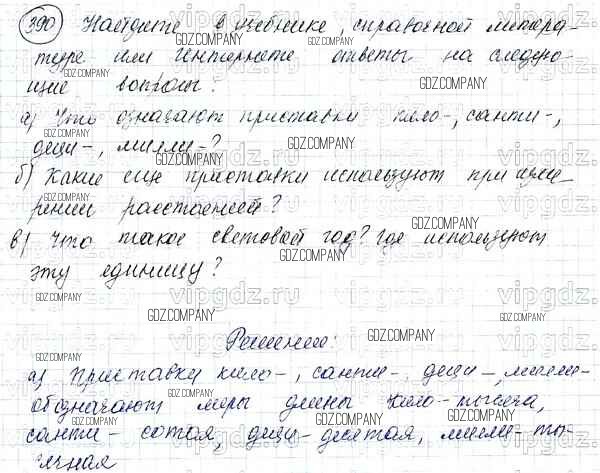 390 Найдите в учебнике, справочной литера-
туре или Интернете ответы на следую-
щие вопросы:
а) Что означают приставки кило-, санти-,
деци-, милли-?
б) Какие еще приставки используют при изме-
рении расстояний?
в) Что такое световой год? Где используют
эту единицу?
Решение:
а) Приставки кило-, санти-, деци-, милли-
обозначают меры длины кило-тысяча,
санти- сотая, деци-десятая, милли-ты-
сячная